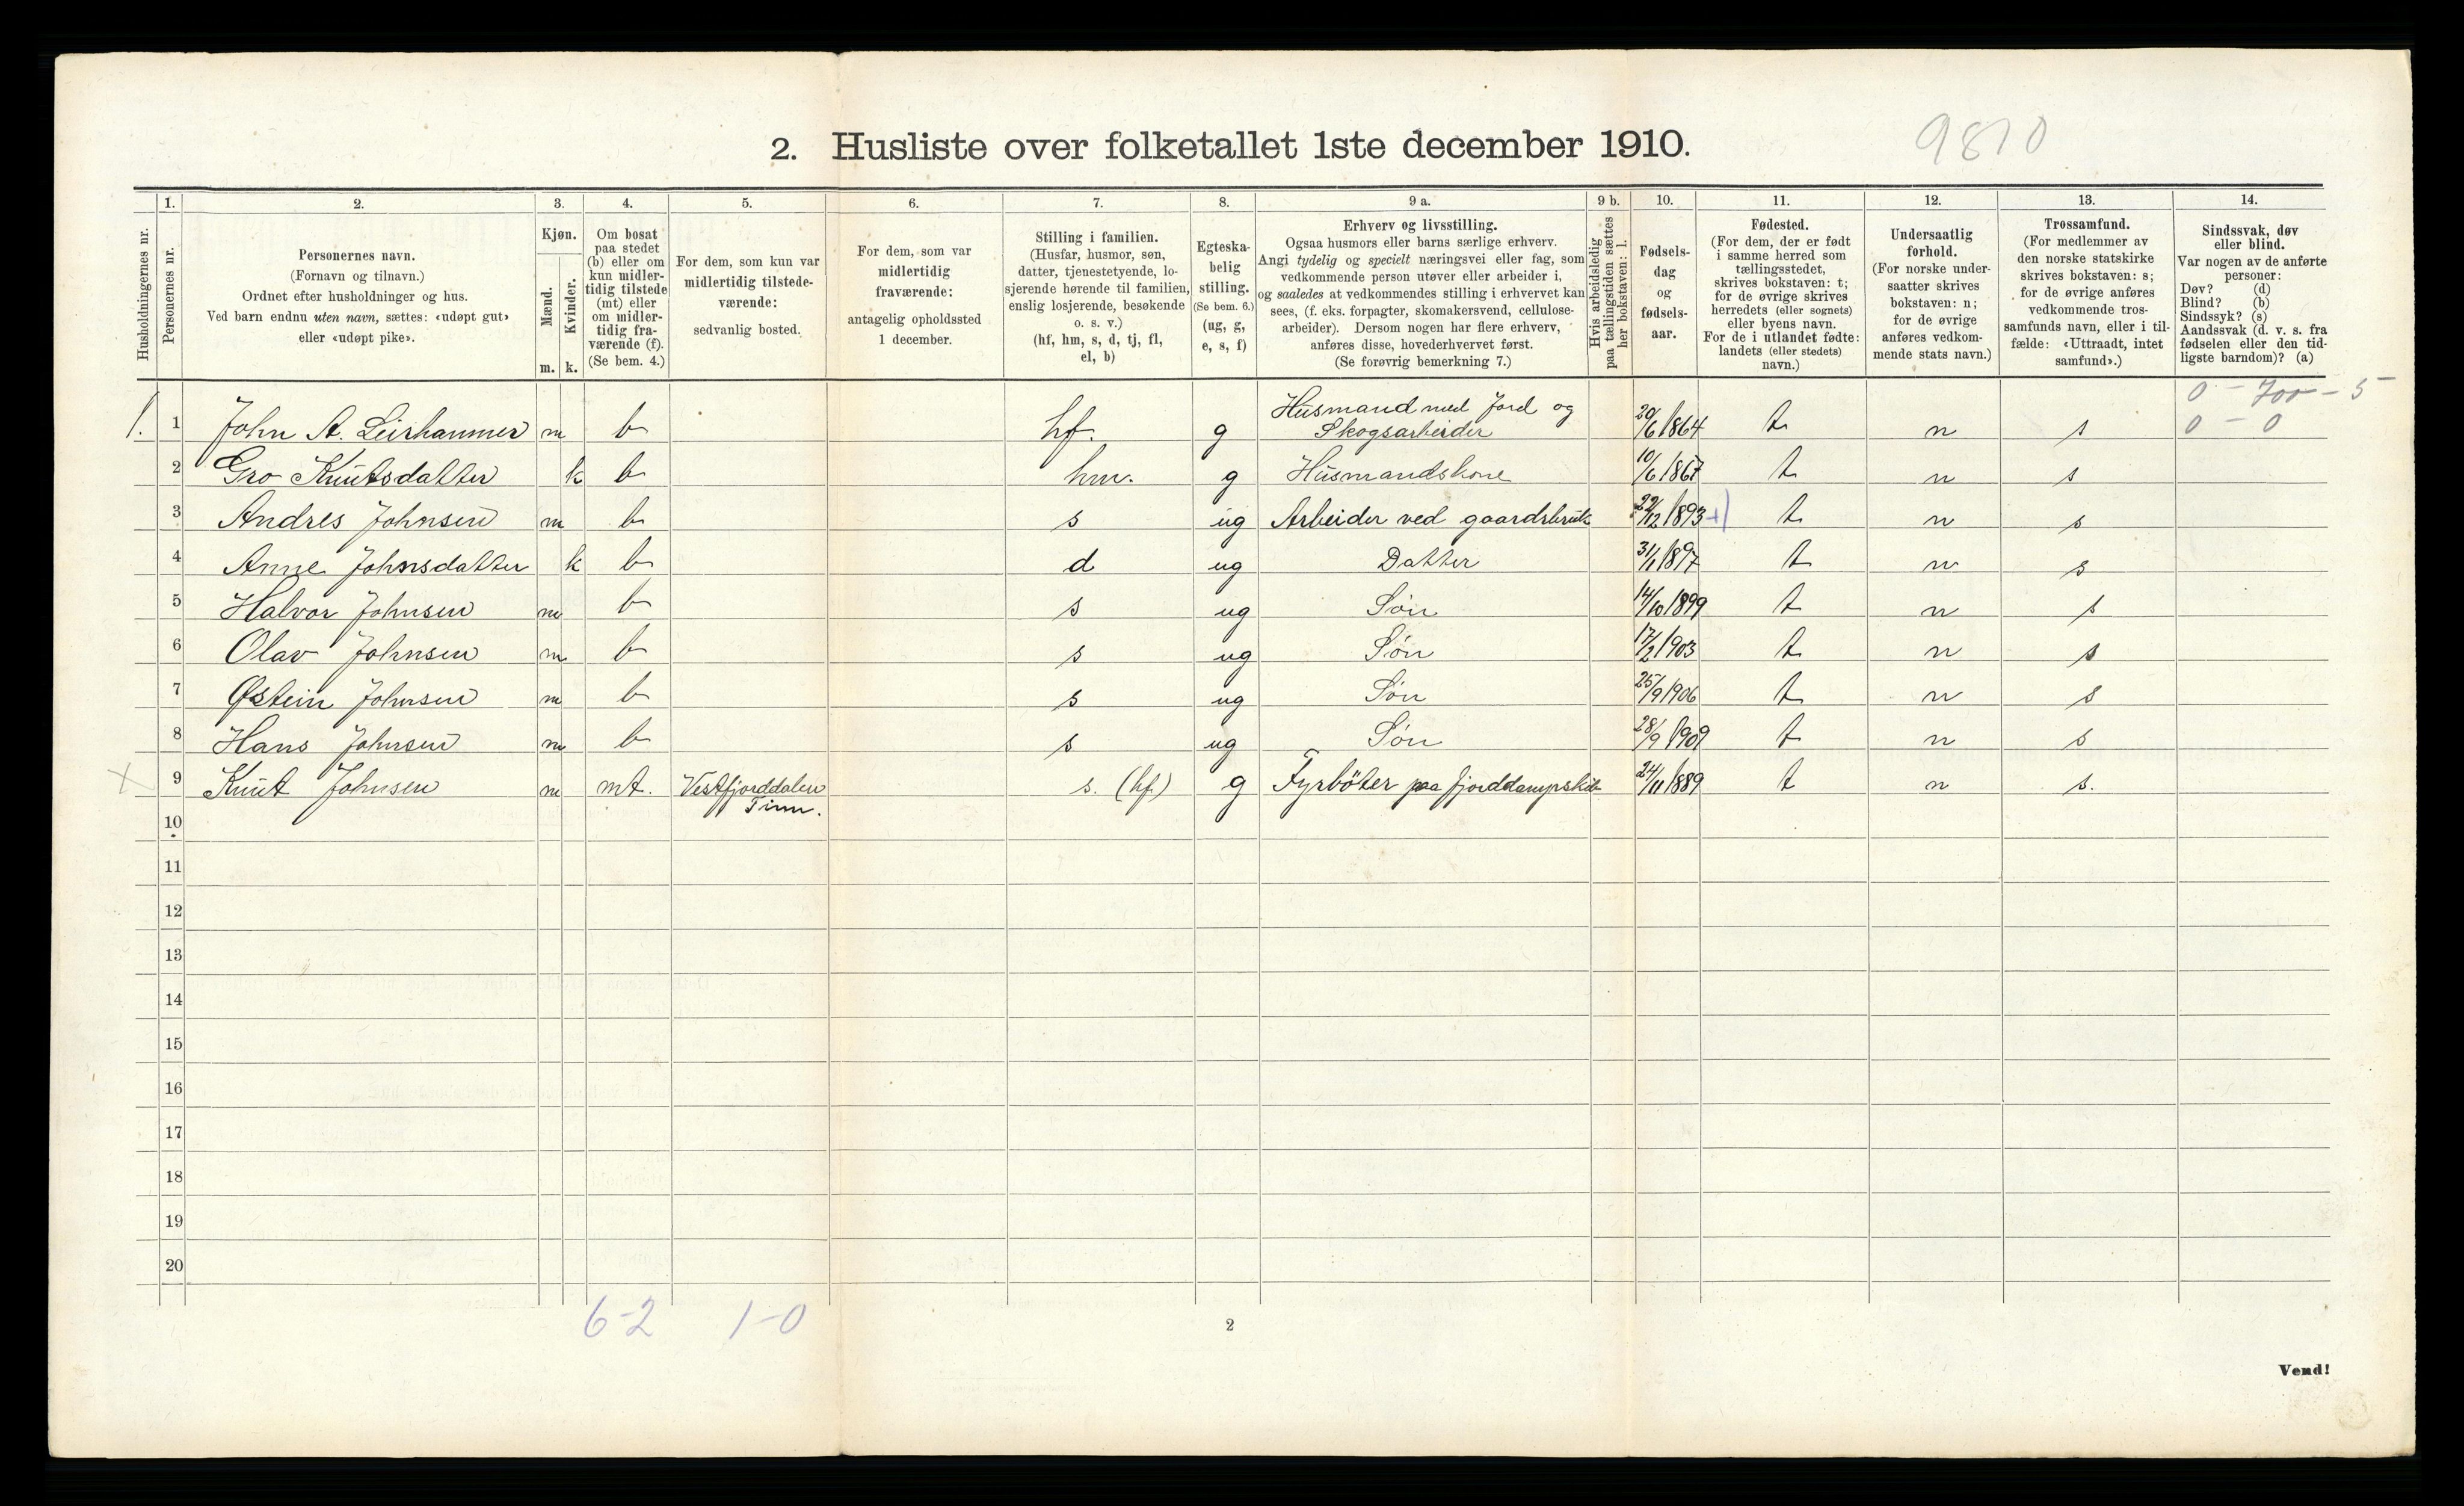 2. Husliste over folketallet 1ste december 1910.
9810
Husholdningernes nr.
1.
Personernes nr.
2.
Personernes navn.
(Fornavn og tilnavn.)
Ordnet efter husholdninger og hus.
Ved barn endnu uten navn, sættes: «udøpt gut»
eller «udøpt pike».
3.
Kjøn.
Mænd.
Kvinder.
m. k.
4.
Om bosat
paa stedet
(b) eller om
kun midler-
tidig tilstede
(mt) eller
om midler-
tidig fra-
værende (f).
(Se bem. 4.)
5.
For dem, som kun var
midlertidig tilstede-
værende:
sedvanlig bosted.
6.
For dem, som var
midlertidig
fraværende:
antagelig opholdssted
1 december.
7.
Stilling i familien.
(Husfar, husmor, søn,
datter, tjenestetyende, lo-
sjerende hørende til familien,
enslig losjerende, besøkende
o. s. v.)
(hf, hm, s, d, tj, fl,
el, b)
8.
Egteska-
belig
stilling.
(Se bem. 6.)
(ug, g,
e, s, f)
9 a.
Erhverv og livsstilling.
Ogsaa husmors eller barns særlige erhverv.
Angi tydelig og specielt næringsvei eller fag, som
vedkommende person utøver eller arbeider i,
og saaledes at vedkommendes stilling i erhvervet kan
sees, (f. eks. forpagter, skomakersvend, cellulose-
arbeider). Dersom nogen har flere erhverv,
anføres disse, hovederhvervet først.
(Se forøvrig bemerkning 7.)
9 b.
Hvis arbeidsledig
paa tællingstiden sættes
her bokstaven: l.
10.
Fødsels-
dag
og
fødsels-
aar.
11.
Fødested.
(For dem, der er født
i samme herred som
tællingsstedet,
skrives bokstaven: t;
for de øvrige skrives
herredets (eller sognets)
eller byens navn.
For de i utlandet fødte:
landets (eller stedets)
navn.)
12.
Undersaatlig
forhold.
(For norske under-
saatter skrives
bokstaven: n;
for de øvrige
anføres vedkom-
mende stats navn.)
13.
Trossamfund.
(For medlemmer av
den norske statskirke
skrives bokstaven: s;
for de øvrige anføres
vedkommende tros-
samfunds navn, eller i til-
fælde: «Uttraadt, intet
samfund».)
14.
Sindssvak, døv
eller blind.
Var nogen av de anførte
personer:
Døv? (d)
Blind? (b)
Sindssyk? (s)
Aandssvak (d. v. s. fra
fødselen eller den tid-
ligste barndom)? (a)
0 - 700 - 5
0 - 0
1. 1 John A. Leirhammer m b hf. g Husmand med Jord og
Skogsarbeider 20/6 1864 t n s
2 Gro Knutsdatter k b hm. g Husmandskone 10/6 1867 t n s
3 Andres Johnsen m b s ug Arbeider ved gaardsbruk 22/12 1893 t n s
4 Anne Johnsdatter k b d ug Datter 31/1 1897 t n s
5 Halvor Johnsen m b s ug Søn 14/10 1899 t n s
6 Olav Johnsen m b s ug Søn 17/2 1903 t n s
7 Østein Johnsen m b s ug Søn 25/9 1906 t n s
8 Hans Johnsen m b s ug Søn 28/9 1909 t n s
x 9 Knut Johnsen m mt. Vestfjorddalen
Tinn. s. (hf) g Fyrböter paa fjorddampskib 24/11 1889 t n s.
10
11
12
13
14
15
16
17
18
19
20
6-2 1-0
2
Vend!